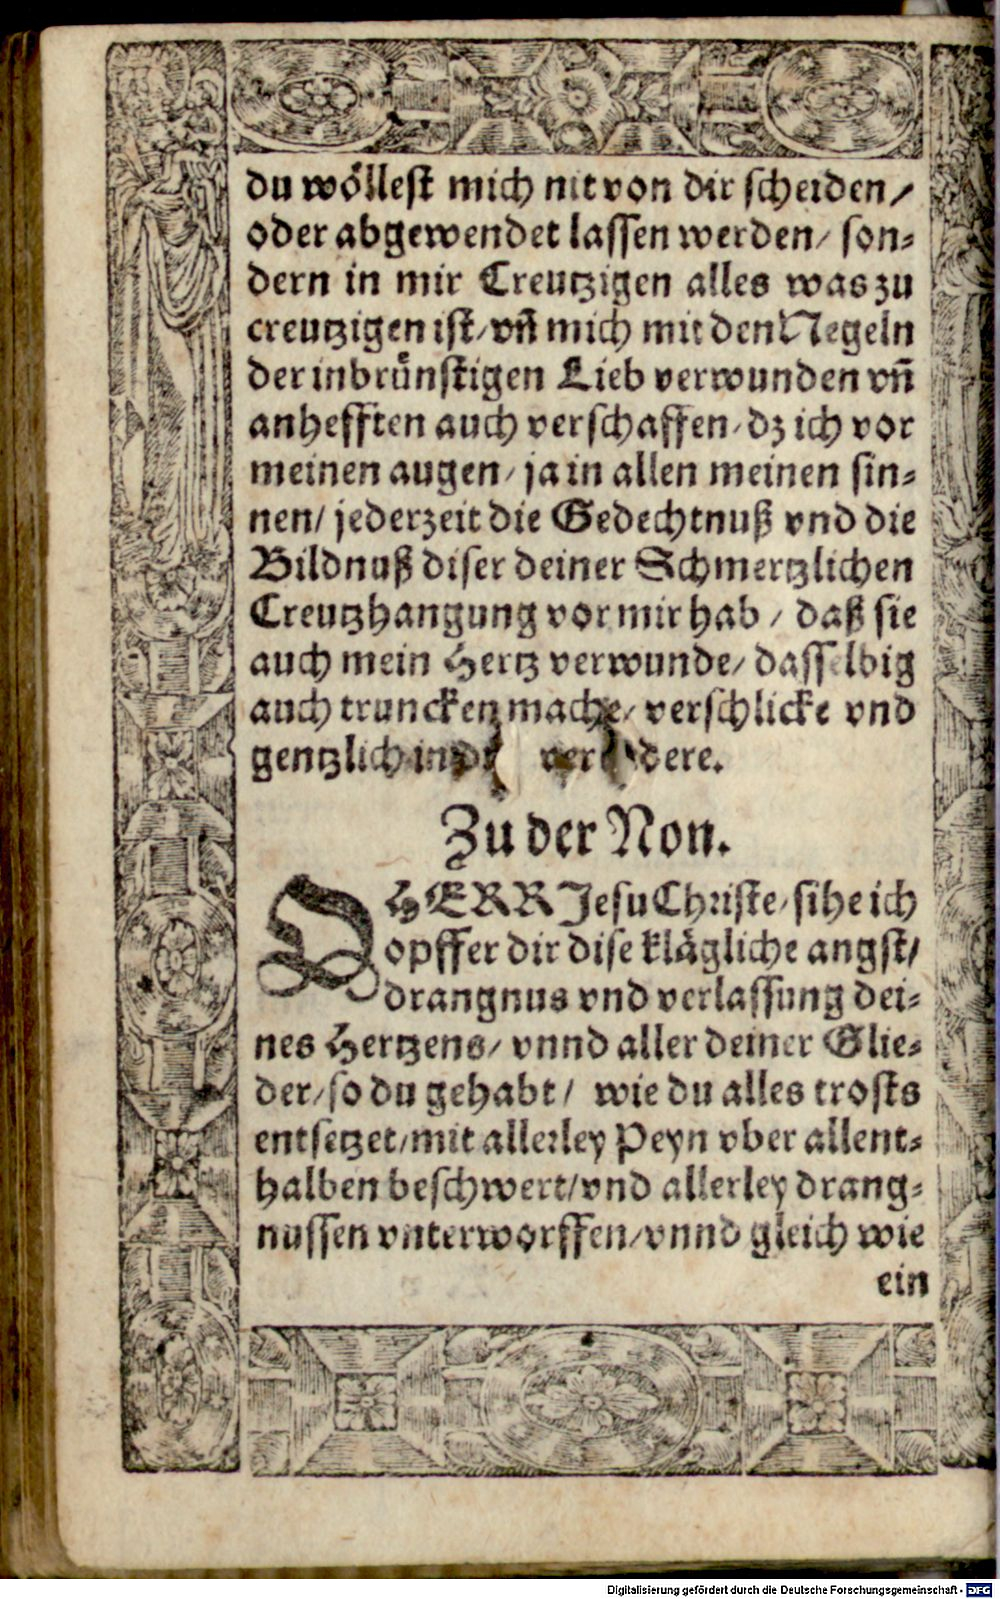 du wöllest mich nit von dir scheiden/
oder abgewendet lassen werden/ son⸗
dern in mir Creutzigen alles was zu
creutzigen ist/ vñ mich mit den Negeln
der inbrünstigen Lieb verwunden vñ
anhefften auch verschaffen/ dz ich vor
meinen augen/ ja in allen meinen sin⸗
nen/ jederzeit die Gedechtnuß vnd die
Bildnuß diser deiner Schmertzlichen
Creutzhangung vor mir hab / daß sie
auch mein Hertz verwunde/ dasselbig
auch truncken mache/ verschlicke vnd
gentzlich in
Zu der Non.
O HERR Jesu Christe/ sihe ich
opffer dir dise klägliche angst/
drangnus vnd verlassung dei⸗
nes Hertzens/ vnnd aller deiner Glie⸗
der/ so du gehabt/ wie du alles trosts
entsetzet/ mit allerley Peyn vber allent⸗
halben beschwert/ vnd allerley drang⸗
nussen vnterworffen/ vnnd gleich wie
ein
Digitalisierung gefördert durch die Deutsche Forschungsgemeinschaft - DFG